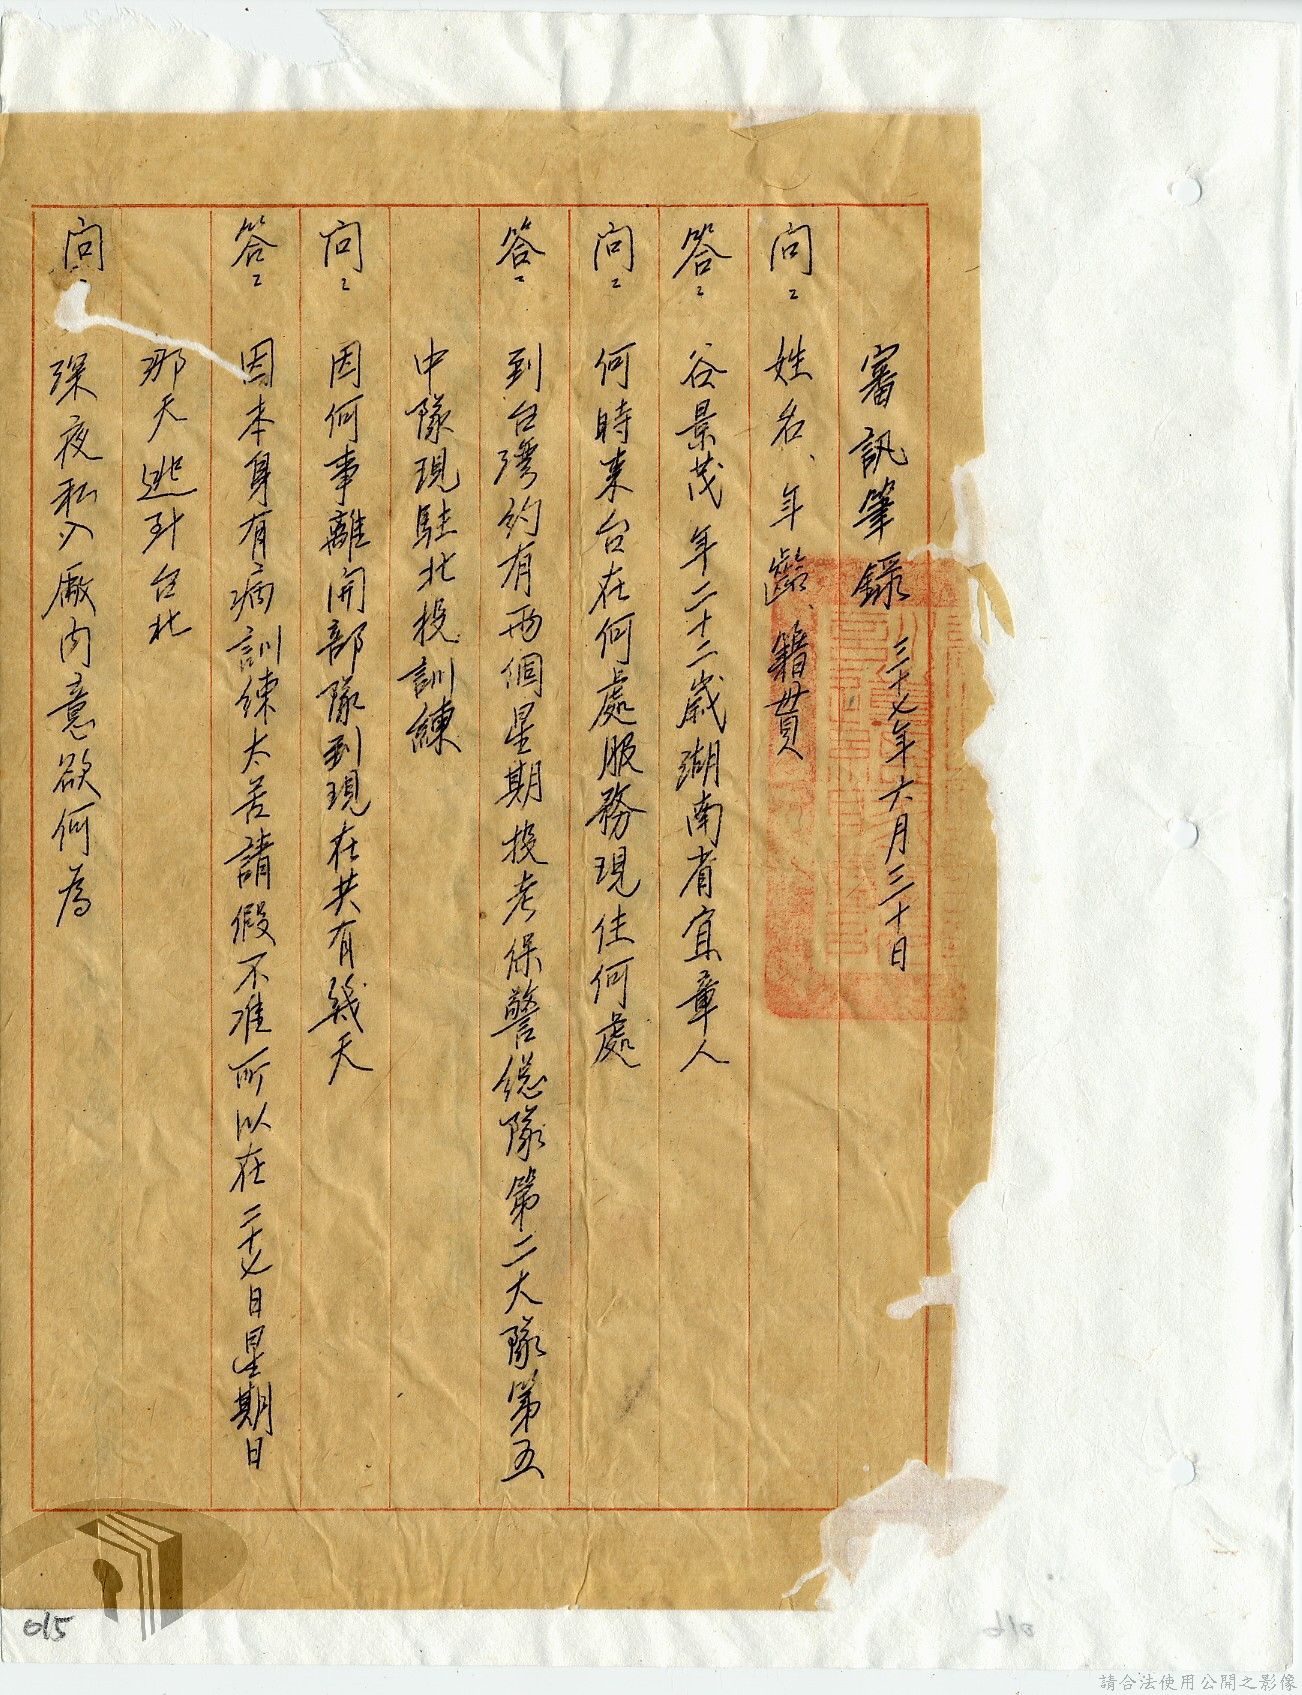 審訊筆錄 三十七年六月三十日
問：姓名、年齡、籍貫
答：谷景茂 年二十二歲湖南省宜章人
問：何時來台在何處服務現住何處
答：到台灣約有両個星期投考保警總隊第二大隊第五
中隊現駐北投訓練
問：因何事離開部隊到現在共有幾天
答：因本身有病訓練太苦請假不准所以在二十七日星期日
那天逃到台北
問：深夜私入廠内意欲何為
015
請合法使用公開之影像